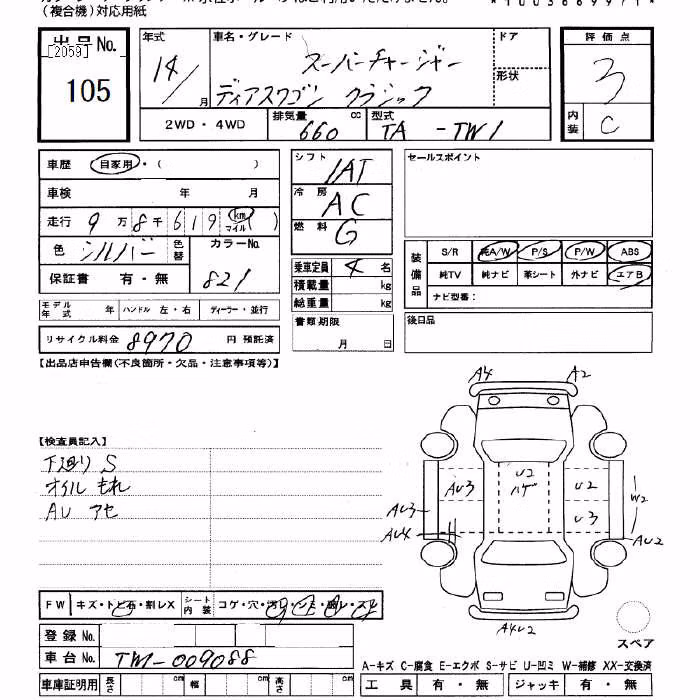 (複合機)対応用紙
出品No.
[2059]
105
年式
14/
月
車名・グレード
スーパーチャージャー
ディアスワゴン クラシック
ドア
形状
評価点
3
内装
C
2WD・4WD
排気量
660
cc
型式
TA -TW1
車歴
自家用・( )
車検 年 月
走行 9万8千619 km マイル ( )
色
シルバー
色替
カラーNo.
821
保証書 有・無
モデル年式 年
ハンドル 左・右
ディーラー・並行
リサイクル料金 8970 円 預託済
シフト
IAT
冷房
AC
燃料
G
乗車定員 4 名
積載量 kg
総重量 kg
書類期限
月 日
セールスポイント
装備品
S/R 純A/W P/S P/W ABS
純TV 純ナビ 革シート 外ナビ エアB
ナビ型番:
後日品
【出品店申告欄(不良箇所・欠品・注意事項等)】
【検査員記入】
下廻り S
オイル もれ
AU アセ
A4
A2
AU3
U2
ハゲ
U2
U3
AU3
AU4
W2
AU2
A4U2
スペア
FW
キズ・トビ石・割レX
シート内装
コゲ・穴・汚レ・シミ・破レ・スレ
登録No.
車台No.
TW1-009088
車庫証明用 長さ cm 幅 cm 高さ cm
A-キズ C-腐食 E-エクボ S-サビ U-凹ミ W-補修 XX-交換済
工具 有・無 ジャッキ 有・無